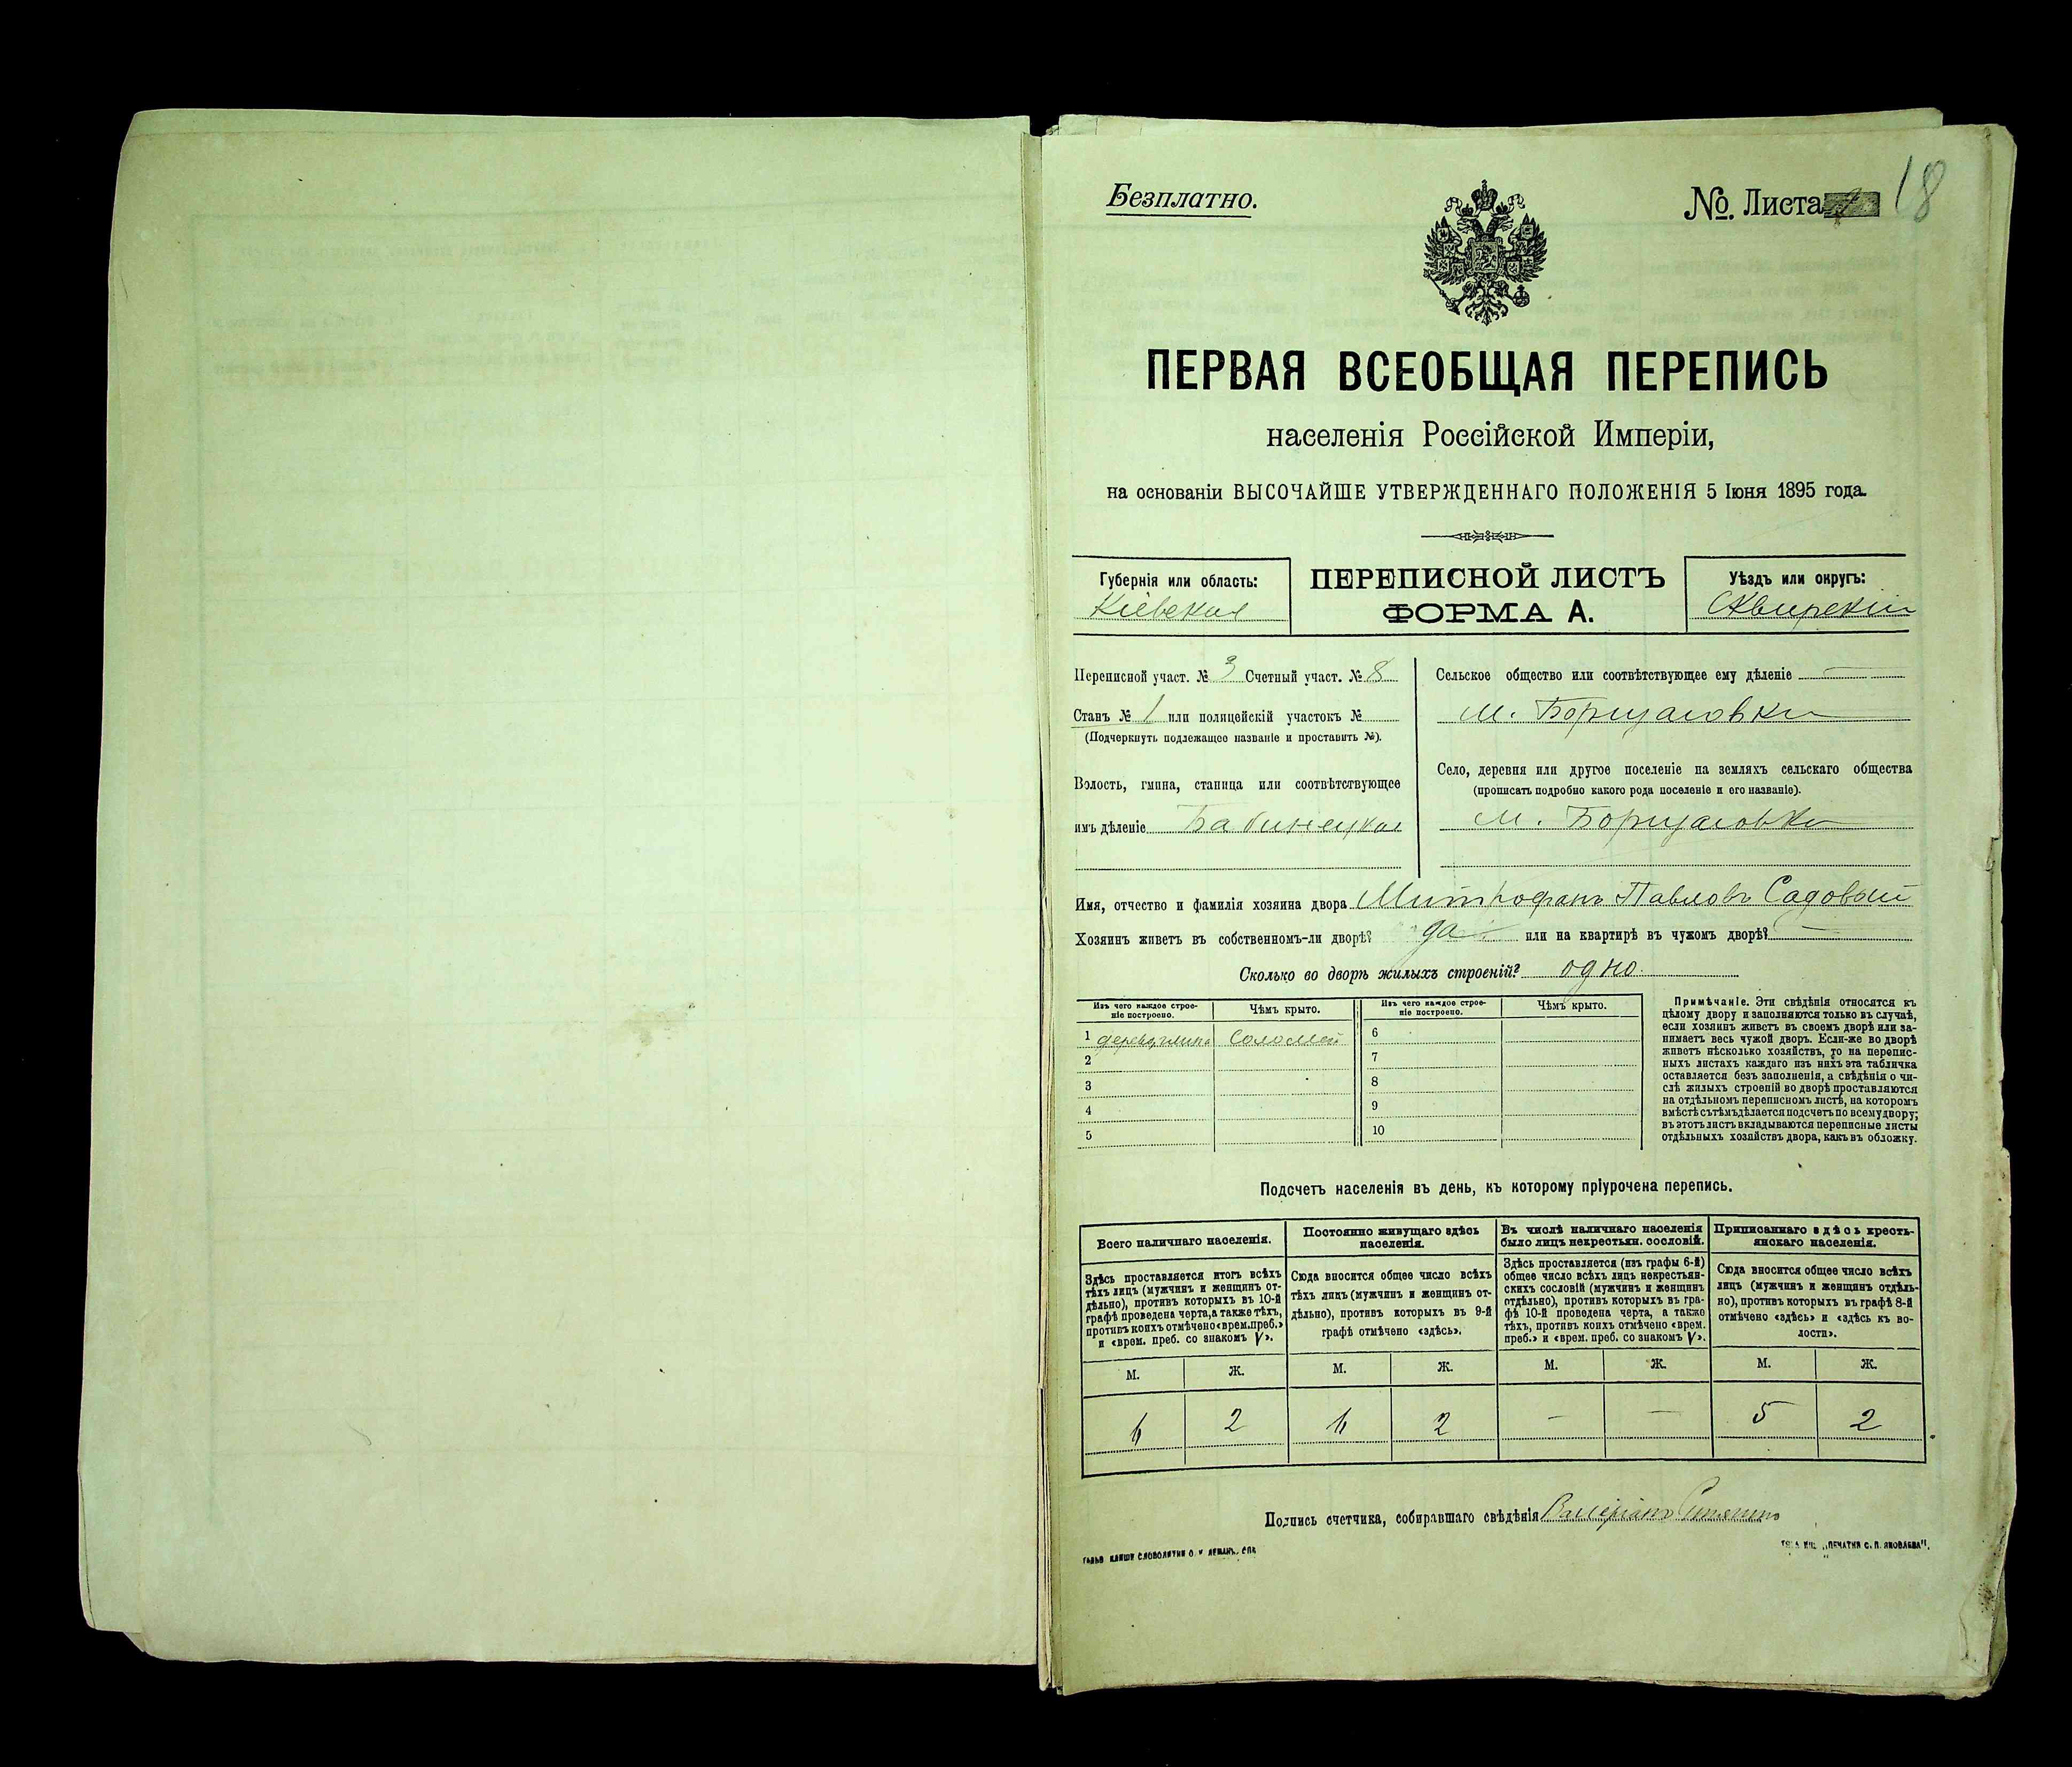 Безплатно.
№. Листа 18
ПЕРВАЯ ВСЕОБЩАЯ ПЕРЕПИСЬ
населенія Россійской Имперіи,
на основаніи ВЫСОЧАЙШЕ УТВЕРЖДЕННАГО ПОЛОЖЕНІЯ 5 Іюня 1895 года.
Губернія или область:
Кіевская
ПЕРЕПИСНОЙ ЛИСТЪ
ФОРМА А.
Уѣздъ или округъ:
Сквирскій
Переписной участ. № 3 Счетный участ. № 8
Станъ № 1 или полицейскій участокъ №
(Подчеркнуть подлежащее названіе и проставить №).
Волость, гмина, станица или соотвѣтствующее
имъ дѣленіе Бабинецкая
Сельское общество или соотвѣтствующее ему дѣленіе —
м. Борщаговка
Село, деревня или другое поселеніе на земляхъ сельскаго общества
(прописать подробно какого рода поселеніе и его названіе).
м. Борщаговка
Имя, отчество и фамилія хозяина двора Митрофанъ Павловъ Садовый
Хозяинъ живетъ въ собственномъ-ли дворѣ? да или на квартирѣ въ чужомъ дворѣ? —
Сколько во дворѣ жилыхъ строеній? одно.
Изъ чего каждое строе-
ніе построено.
Чѣмъ крыто.
Изъ чего каждое строе-
ніе построено.
Чѣмъ крыто.
1 Соломой 6
2 7
3 8
4 9
5 10
Примѣчаніе. Эти свѣдѣнія относятся къ
цѣлому двору и заполняются только въ случаѣ,
если хозяинъ живетъ въ своемъ дворѣ или за-
нимаетъ весь чужой дворъ. Если-же во дворѣ
живетъ нѣсколько хозяйствъ, то на перепис-
ныхъ листахъ каждаго изъ нихъ эта табличка
оставляется безъ заполненія, а свѣдѣнія о чи-
слѣ жилыхъ строеній во дворѣ проставляются
на отдѣльномъ переписномъ листѣ, на которомъ
вмѣстѣ съ тѣмъ дѣлается подсчетъ по всему двору;
въ этотъ листъ вкладываются переписные листы
отдѣльныхъ хозяйствъ двора, какъ въ обложку.
Подсчетъ населенія въ день, къ которому пріурочена перепись.
Всего наличнаго населенія.
Здѣсь проставляется итогъ всѣхъ
тѣхъ лицъ (мужчинъ и женщинъ от-
дѣльно), противъ которыхъ въ 10-й
графѣ проведена черта, а также тѣхъ,
противъ коихъ отмѣчено «врем. преб.»
и «врем. преб. со знакомъ V».
Постоянно живущаго здѣсь
населенія.
Сюда вносится общее число всѣхъ
тѣхъ лицъ (мужчинъ и женщинъ от-
дѣльно), противъ которыхъ въ 9-й
графѣ отмѣчено «здѣсь».
Въ числѣ наличнаго населенія
было лицъ некрестьян. сословій.
Здѣсь проставляется (изъ графы 6-й)
общее число всѣхъ лицъ некрестьян-
скихъ сословій (мужчинъ и женщинъ
отдѣльно), противъ которыхъ въ гра-
фѣ 10-й проведена черта, а также
тѣхъ, противъ коихъ отмѣчено «врем.
преб.» и «врем. преб. со знакомъ V».
Приписаннаго здѣсь кресть-
янскаго населенія.
Сюда вносится общее число всѣхъ
лицъ (мужчинъ и женщинъ отдѣль-
но), противъ которыхъ въ графѣ 8-й
отмѣчено «здѣсь» и «здѣсь къ во-
лости».
М. Ж. М. Ж. М. Ж. М. Ж.
6 2 6 2 — — 5 2
Подпись счетчика, собиравшаго свѣдѣнія Валеріанъ